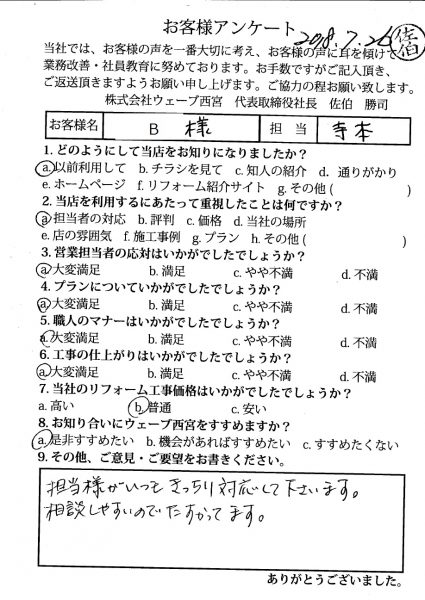 お客様アンケート 2018.7.26 佐伯
当社では、お客様の声を一番大切に考え、お客様の声に耳を傾けて
業務改善・社員教育に努めております。お手数ですがご記入頂き、
ご返送頂きますようお願い申し上げます。ご協力の程お願い致します。
株式会社ウェーブ西宮 代表取締役社長 佐伯 勝司
お客様名 B 様 担当 寺本
1. どのようにして当店をお知りになりましたか?
a.以前利用して b.チラシを見て c.知人の紹介 d. 通りがかり
e.ホームページ f.リフォーム紹介サイト g.その他( )
2. 当店を利用するにあたって重視したことは何ですか?
a.担当者の対応 b.評判 c.価格 d.当社の場所
e.店の雰囲気 f.施工事例 g.プラン h.その他( )
3. 営業担当者の応対はいかがでしたでしょうか?
a.大変満足 b.満足 c.やや不満 d.不満
4. プランについていかがでしたでしょうか?
a.大変満足 b.満足 c.やや不満 d.不満
5. 職人のマナーはいかがでしたでしょうか?
a.大変満足 b.満足 c.やや不満 d.不満
6. 工事の仕上がりはいかがでしたでしょうか?
a.大変満足 b.満足 c.やや不満 d.不満
7. 当社のリフォーム工事価格はいかがでしたでしょうか?
a.高い b.普通 c.安い
8. お知り合いにウェーブ西宮をすすめますか?
a.是非すすめたい b.機会があればすすめたい c.すすめたくない
9. その他、ご意見・ご要望をお書きください。
担当様がいつもきっちり対応して下さいます。
相談しやすいのでたすかってます。
ありがとうございました。